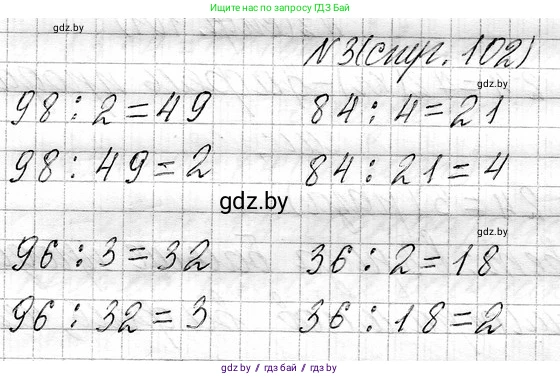 Пишите нас по запросу ГДЗ Бай
gdz.by
№3(стр. 102)
gdz.by
98 : 2 = 49 84 : 4 = 21
98 : 49 = 2 84 : 21 = 4
gdz.by
gdz.by
96 : 3 = 32 36 : 2 = 18
96 : 32 = 3 36 : 18 = 2
gdz.by // гдз бай // гдз.by